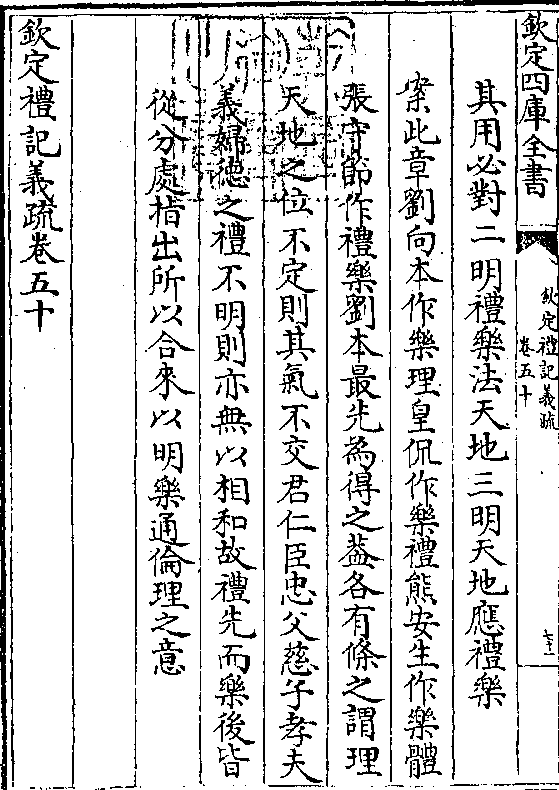 欽定四庫全書
欽定禮記義疏
卷五十
七十一
其用必對二明禮樂法天地三明天地應禮樂
案此章劉向本作樂理皇侃作樂禮熊安生作樂體
張守節作禮樂劉本最先為得之葢各有條之謂理
天地之位不定則其氣不交君仁臣忠父慈子孝夫
義婦德之禮不明則亦無以相和故禮先而樂後皆
從分處指出所以合來以明樂通倫理之意
欽定禮記義疏卷五十